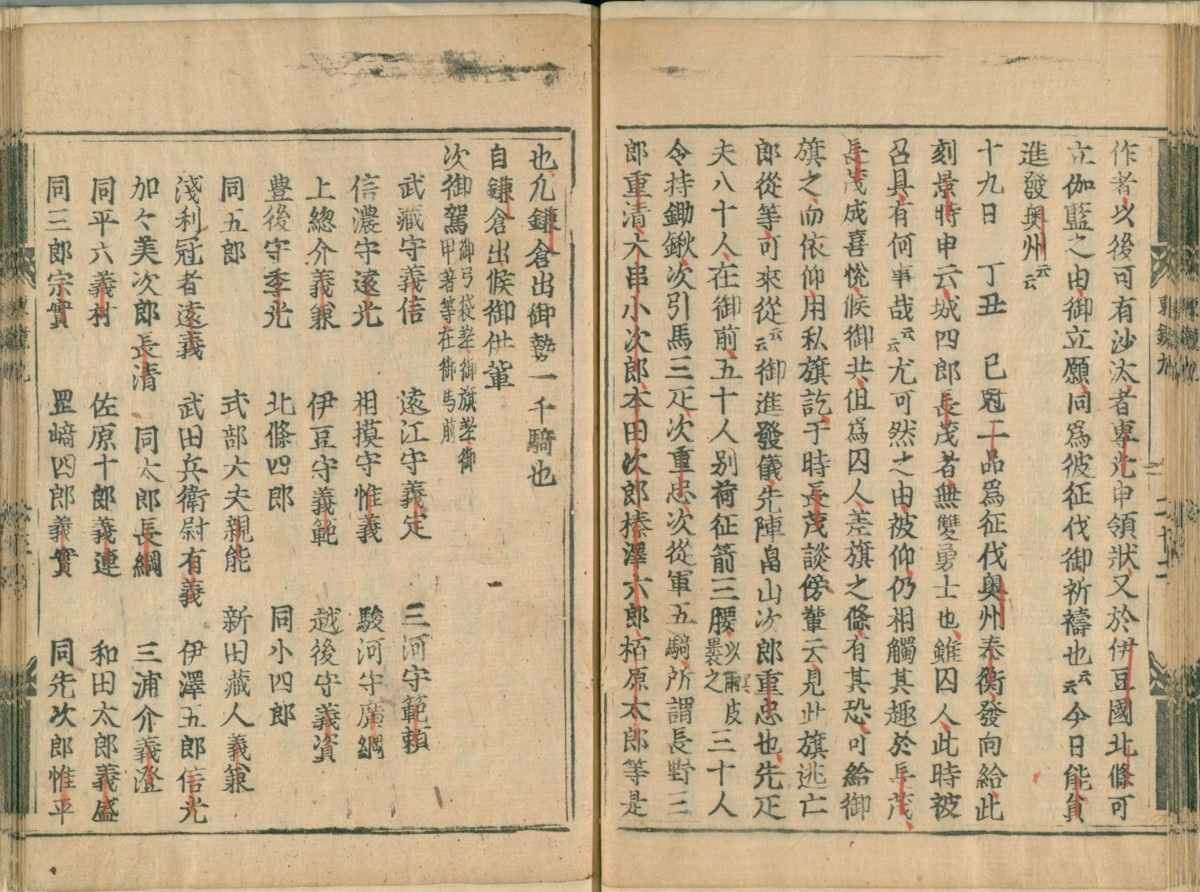 作者以後可有沙汰者專光申領狀又於伊豆國北條可
立伽藍之由御立願同爲彼征伐御祈禱也云云今日能員
進發奥州云云
十九日 丁丑 巳尅二品爲征伐奥州泰衡發向給此
刻景時申云城四郎長茂者無雙勇士也雖囚人此時被
召具有何事哉云云尤可然之由被仰仍相觸其趣於長茂
長茂成喜悅候御共但爲囚人差旗之條有其恐可給御
旗之而依仰用私旗訖于時長茂談傍輩云見此旗逃亡
郎從等可來從云云御進發儀先陣畠山次郎重忠也先疋
夫八十人在御前五十人別荷征箭三腰以雨皮裹之三十人
令持鋤鍬次引馬三疋次重忠次從軍五騎所謂長野三
郎重清大串小次郎本田次郎榛澤六郎栢原太郎等是
東鑑九
也凢鎌倉出御勢一千騎也
次御駕御弓袋差御旗差御甲著等在御馬前
自鎌倉出候御供輩
武藏守義信 遠江守義定 三河守範頼
信濃守遠光 相摸守惟義 駿河守廣綱
上總介義兼 伊豆守義範 越後守義資
豊後守季光 北條四郎 同小四郎
同五郎 式部大夫親能 新田藏人義兼
淺利冠者遠義 武田兵衛尉有義 伊澤五郎信光
加々美次郎長清 同太郎長綱 三浦介義澄
同平六義村 佐原十郎義連 和田太郎義盛
同三郎宗實 罡﨑四郎義實 同先次郎惟平